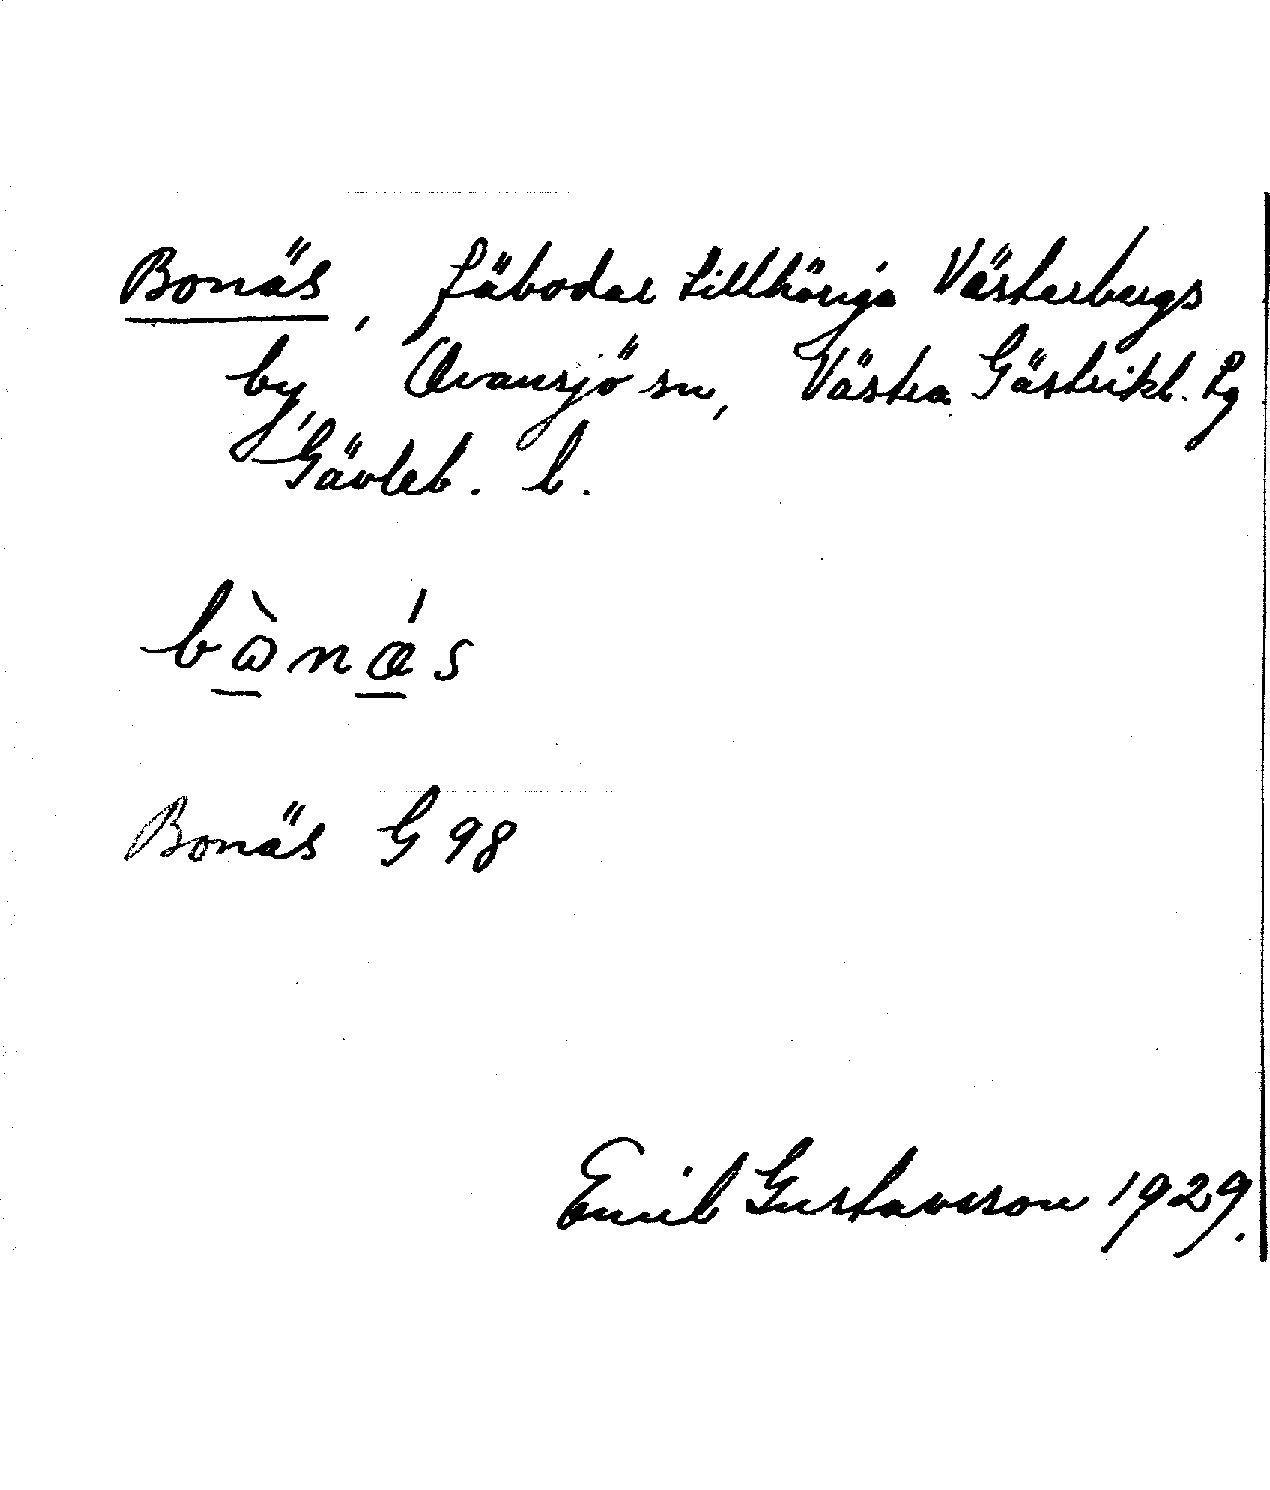 Bonäs, fäbodar tillhöriga Västerbergs
by, Ovansjö sn, Västra Gästrikl. tg
Gävleb. l.
bὼnǽs
Bonäs G 98
Emil Gustavsson 1929.